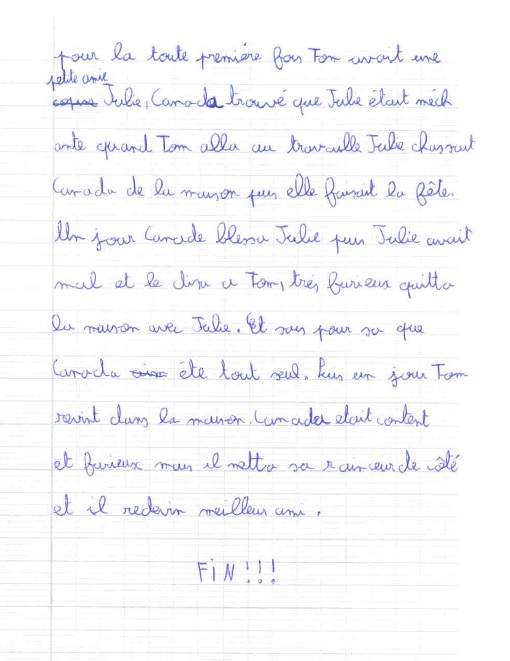 pour la toute première fois Tom avait une
petite amie
copine Julie, Canada trouvé que Julie était méch
ante quand Tom alla au travaille Julie chassait
Canada de la maison puis elle faisait la fête.
Un jour Canada blessa Julie puis Julie avait
mal et le disa a Tom, très furieux quitta
la maison avec Julie. Et sais pour sa que
Canada éte tout seul. Puis un jour Tom
revint dans la maison. Canada etait content
et furieux mais il metta sa rainceur de côté
et il redevin meilleur ami.
FIN!!!